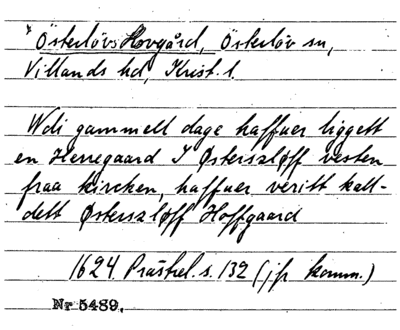 *Österlövs Hovgård, Österlöv sn,
Villands hd, Krist. l.
Wdi gammell dage haffuer liggett
en Herregaard I Østerszløff vesten
fraa kircken, haffuer veritt kall-
dett Østerszløff Hoffgaard
1624 Prästrel. s. 132 (jfr komm.)
Nr 5489.